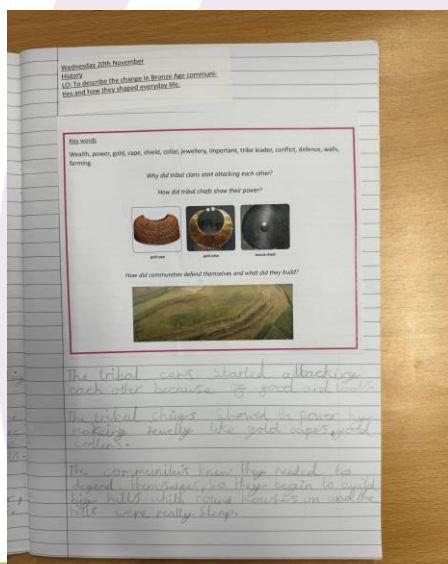 Wednesday 20th November
History
LO: To describe the change in Bronze Age communi-
ties and how they shaped everyday life.
Key words
Wealth, power, gold, cape, shield, collar, jewellery, important, tribe leader, conflict, defence, walls,
farming.
Why did tribal clans start attacking each other?
How did tribal chiefs show their power?
gold cape
gold collar
bronze shield
How did communities defend themselves and what did they build?
The tribal cans started attacking
each other because of good and tools
The tribal chiges showed the power by
makeing Jewelly like gold capes, gold
collers.
The communiteis knew they needed to
degend themselves, So they begin to build
big hills with round howses on and the
hills were really Steap.